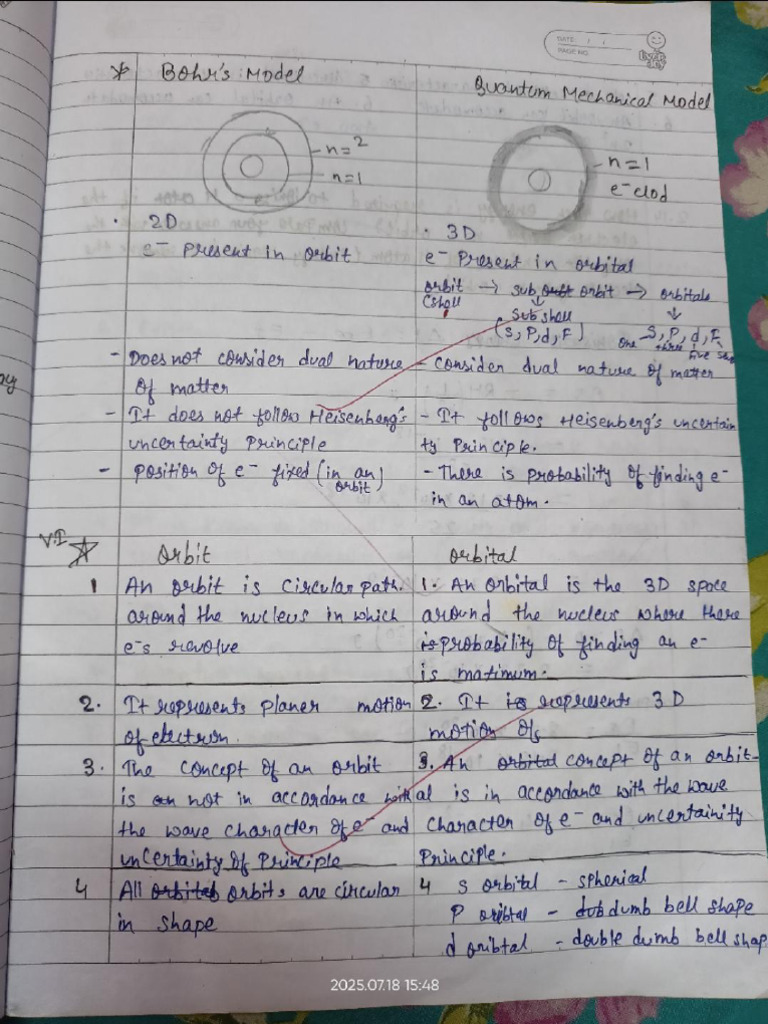 DATE: / /
PAGE NO.
* Bohr's Model
Quantum Mechanical Model
n=2
n=1
n=1
e⁻clod
· 2D
e⁻ Present in orbit
· 3D
e⁻ Present in orbital
orbit → sub orbit → orbitals
(Shell
Sub shell
(s, P, d, F)
S, P, d, F
one three five
- Does not consider dual nature
of matter
- Consider dual nature of matter
- It does not follow Heisenberg's
uncertainty Principle
- It follows Heisenberg's uncertain
ty Principle.
- Position of e⁻ fixed (in an
orbit)
- There is probability of finding e⁻
in an atom.
V.I
Orbit
Orbital
1 An orbit is Circular path.
around the nucleus in which
e⁻s revolve
1. An orbital is the 3D space
around the nucleus where there
is probability of finding an e⁻
is matimum.
2. It represents planer motion
of electron.
2. It represents 3D
motion of
3. The concept of an orbit
is not in accordance with
the wave character of e⁻ and
uncertainty of Principle
3. An orbital concept of an orbit-
al is in accordance with the wave
Character of e⁻ and uncertainity
Principle.
4 All orbits are circular
in shape
4 s orbital - spherical
P oribtal - dumb bell shape
d oribtal - double dumb bell shap
2025.07.18 15:48